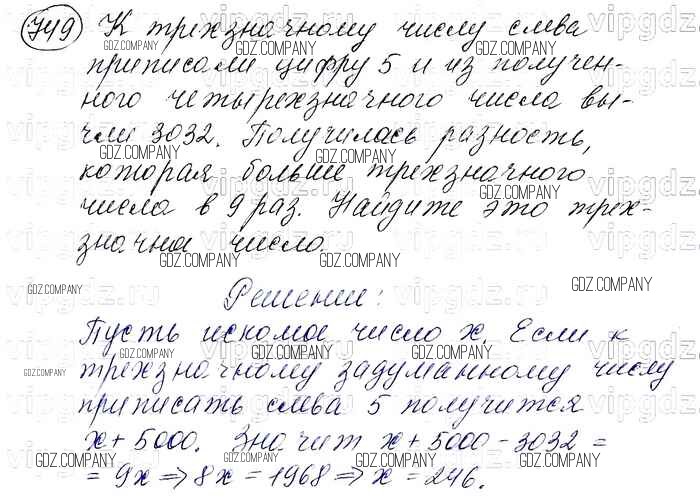 749 К трехзначному числу слева
приписали цифру 5 и из получен-
ного четырехзначного числа вы-
чли 3032. Получилась разность,
которая больше трехзначного
числа в 9 раз. Найдите это трех-
значна число.
Решение:
Пусть искомое число x. Если к
трехзначному задуманному числу
приписать слева 5 получится
x + 5000. Значит x + 5000 - 3032 =
= 9x ⇒ 8x = 1968 ⇒ x = 246.